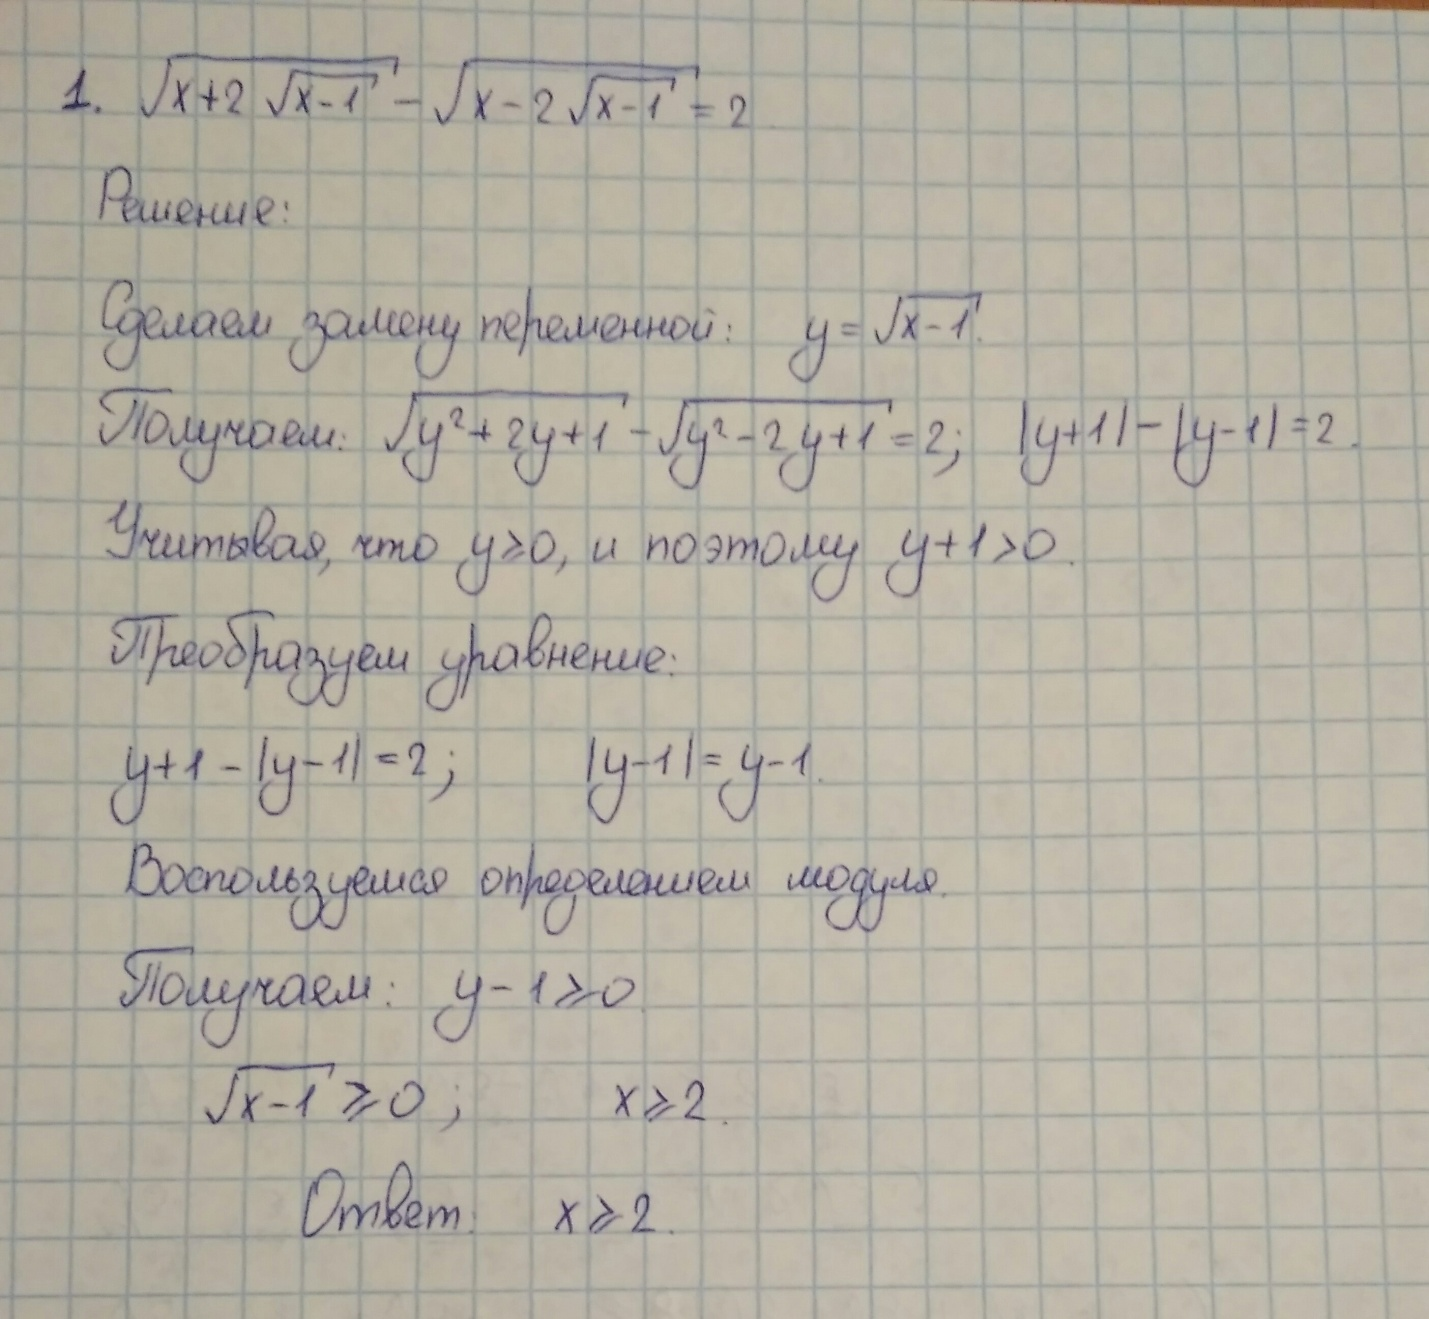 1. √(x+2√(x-1)) - √(x-2√(x-1)) = 2
Решение:
Сделаем замену переменной: y = √(x-1).
Получаем: √(y²+2y+1) - √(y²-2y+1) = 2; |y+1| - |y-1| = 2.
Учитывая, что y≥0, и поэтому y+1>0.
Преобразуем уравнение:
y+1 - |y-1| = 2; |y-1| = y-1.
Воспользуемся определением модуля.
Получаем: y-1≥0
√(x-1) ≥ 0; x≥2.
Ответ: x≥2.